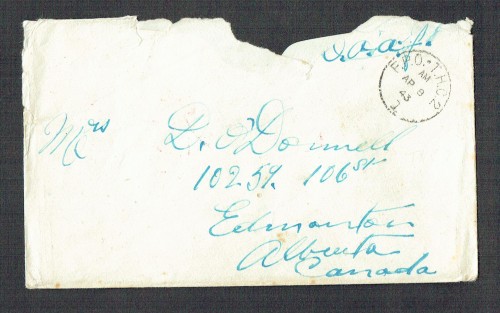 O.A.S.
F.P.O.-T.H.C.2
AM
AP 9
43
Mrs D. O'Donnell
10259. 106 St
Edmonton
Alberta
Canada